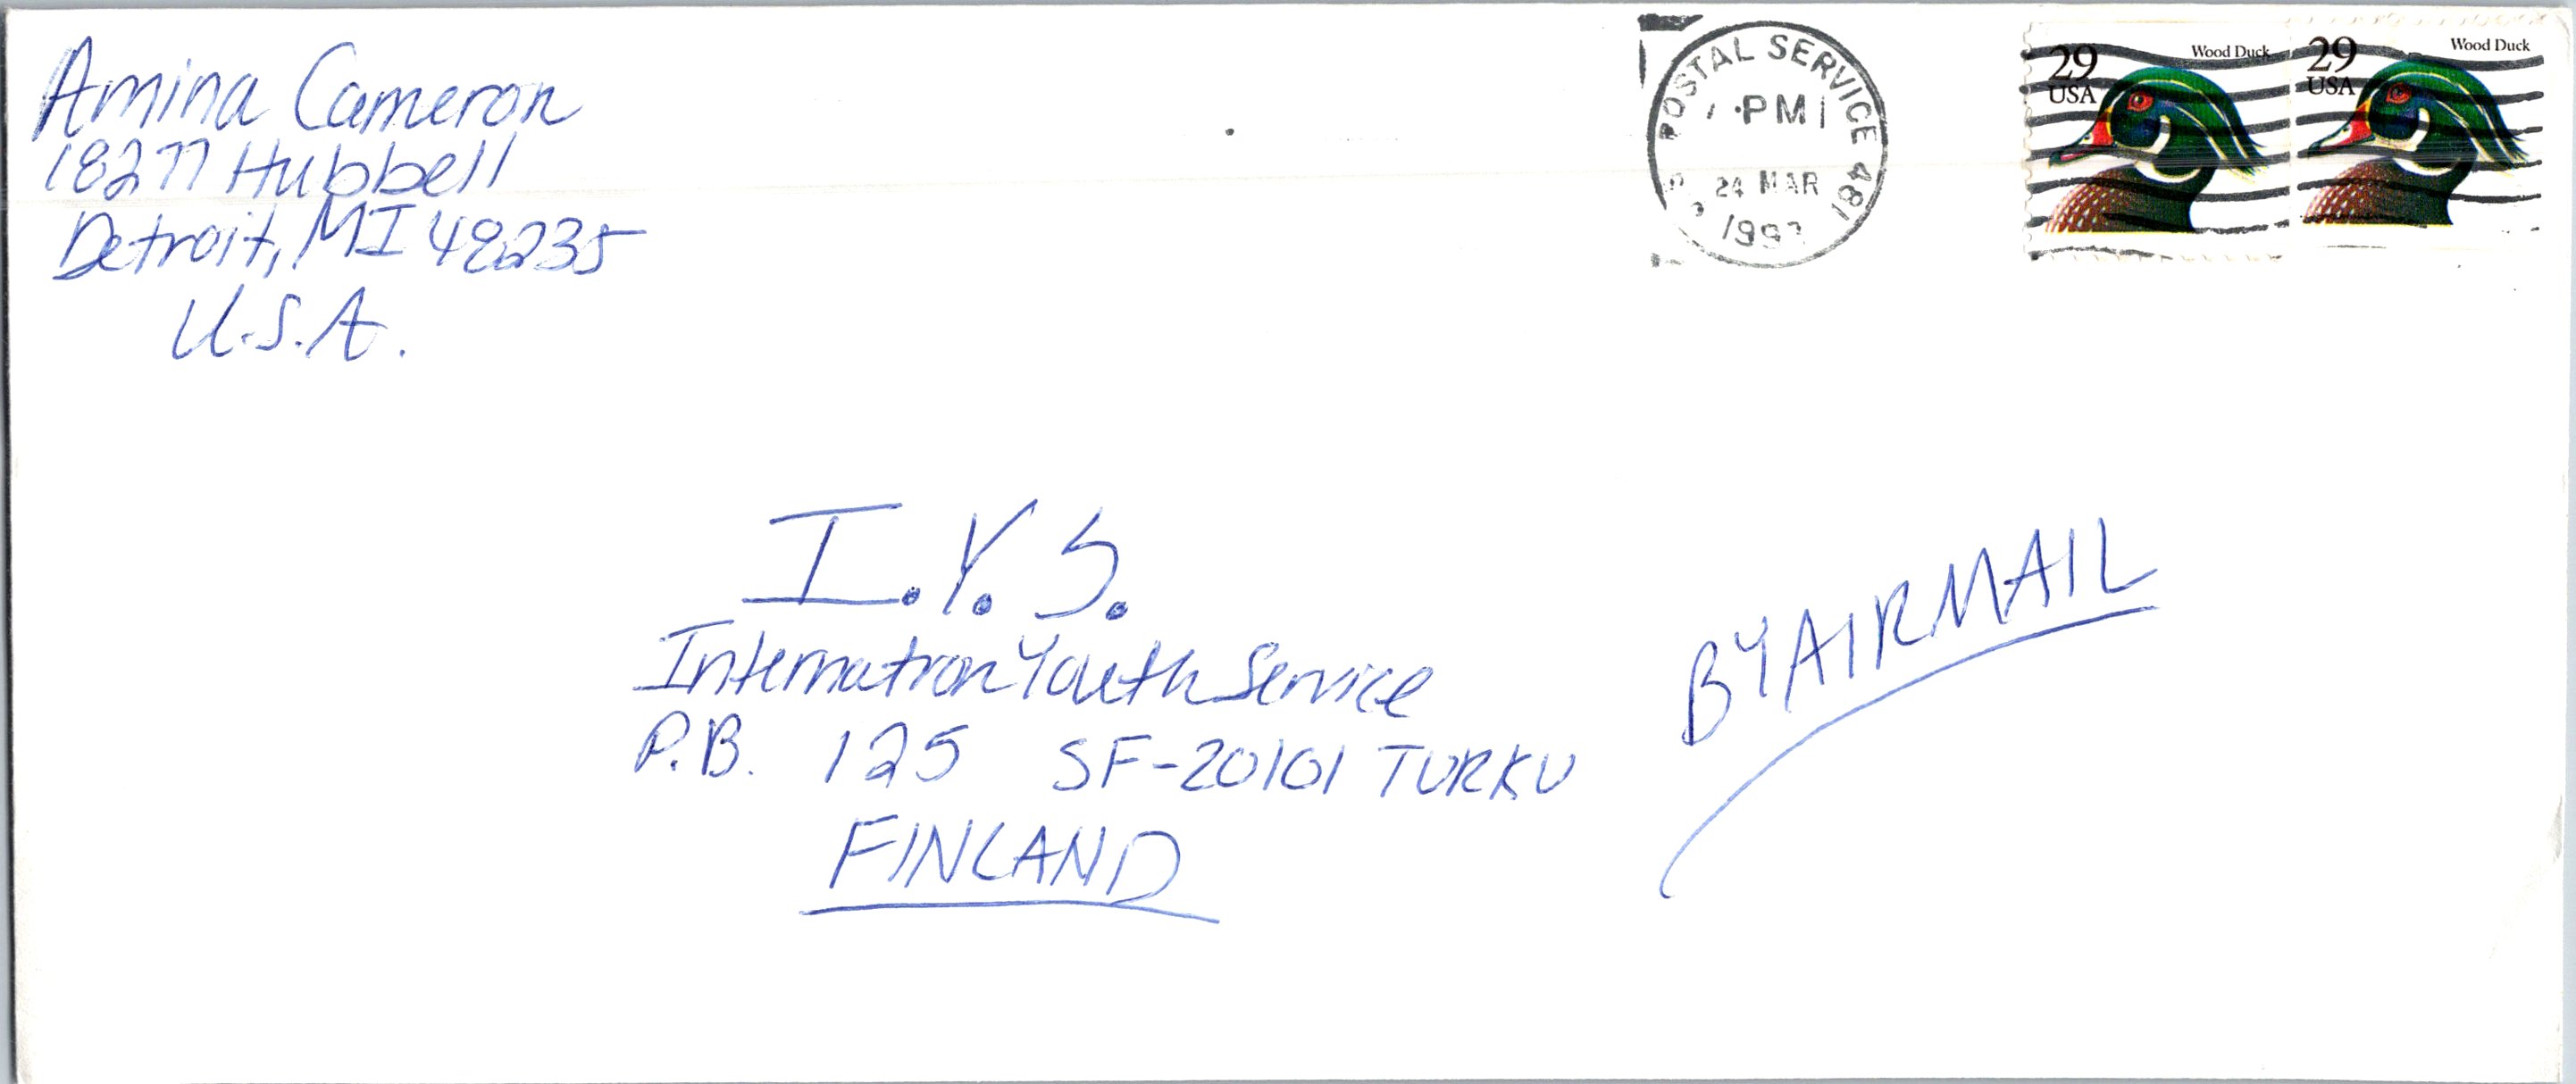 Amina Cameron
18277 Hubbell
Detroit, MI 48235
U.S.A.
POSTAL SERVICE 481
PM
24 MAR
29
USA
Wood Duck
29
USA
Wood Duck
I.Y.S.
Internation Youth Service
P.B. 125 SF-20101 TURKU
FINLAND
BY AIRMAIL